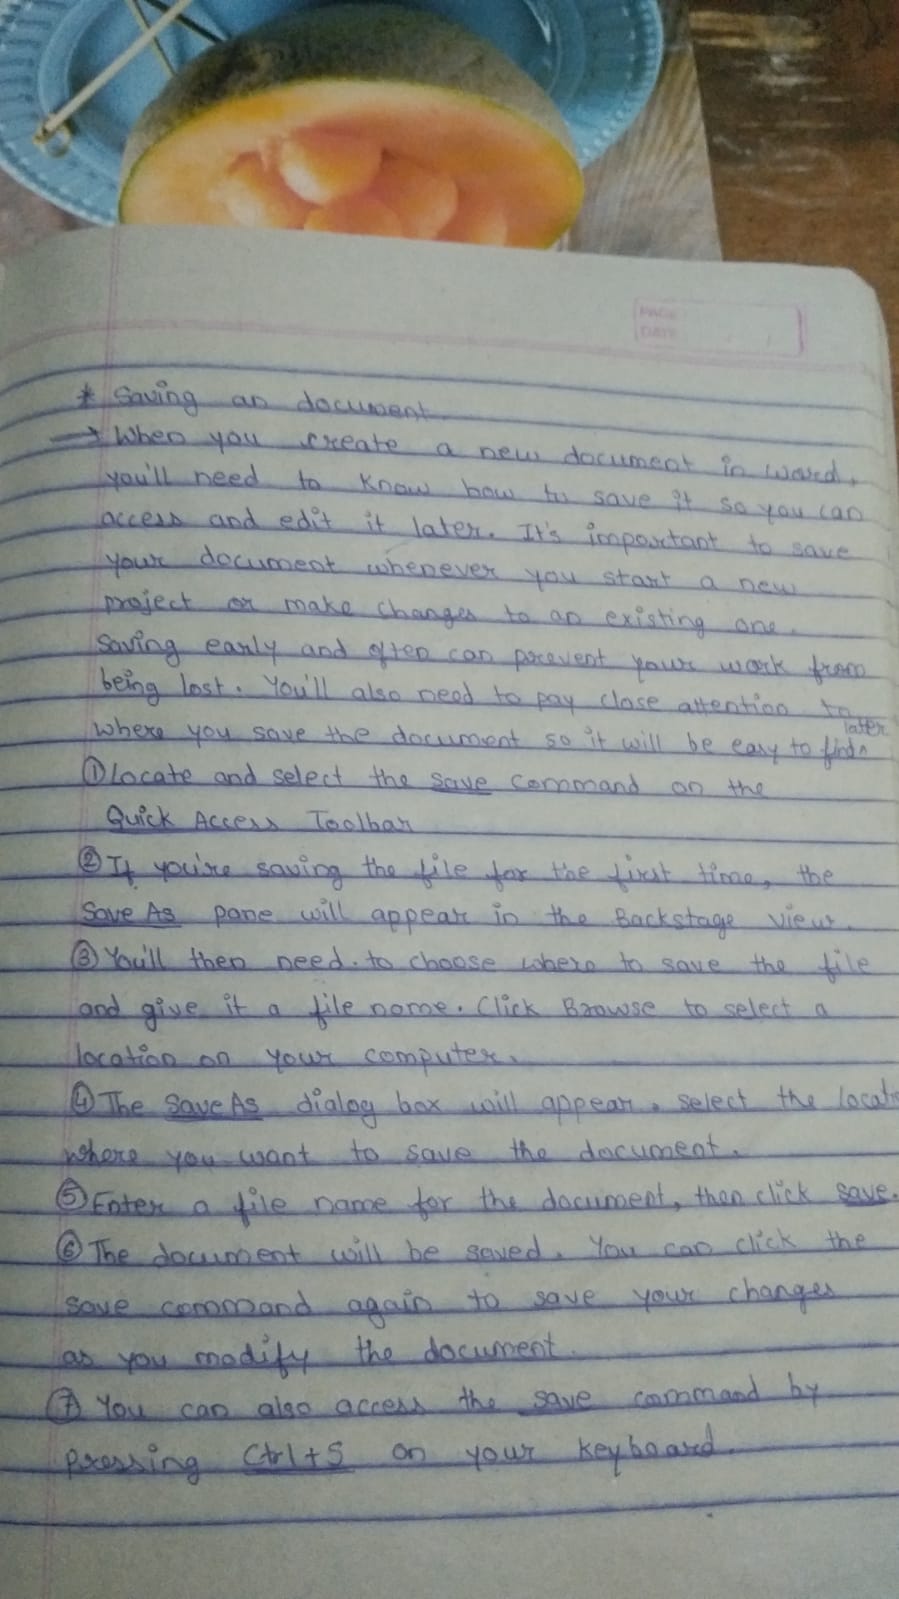 PAGE
DATE
* Saving an document.
→ When you create a new document in word,
you'll need to know how to save it so you can
access and edit it later. It's important to save
your document whenever you start a new
project or make changes to an existing one.
Saving early and often can prevent your work from
being lost. You'll also need to pay close attention to
where you save the document so it will be easy to find^ later
① Locate and select the save command on the
Quick Access Toolbar
② If you're saving the file for the first time, the
Save As pane will appear in the Backstage view.
③ You'll then need to choose where to save the file
and give it a file name. Click Browse to select a
location on your computer.
④ The Save As dialog box will appear. select the locati
where you want to save the document.
⑤ Enter a file name for the document, then click save.
⑥ The document will be saved. You can click the
save command again to save your changes
as you modify the document.
⑦ You can also access the save command by
pressing Ctrl+S on your keyboard.